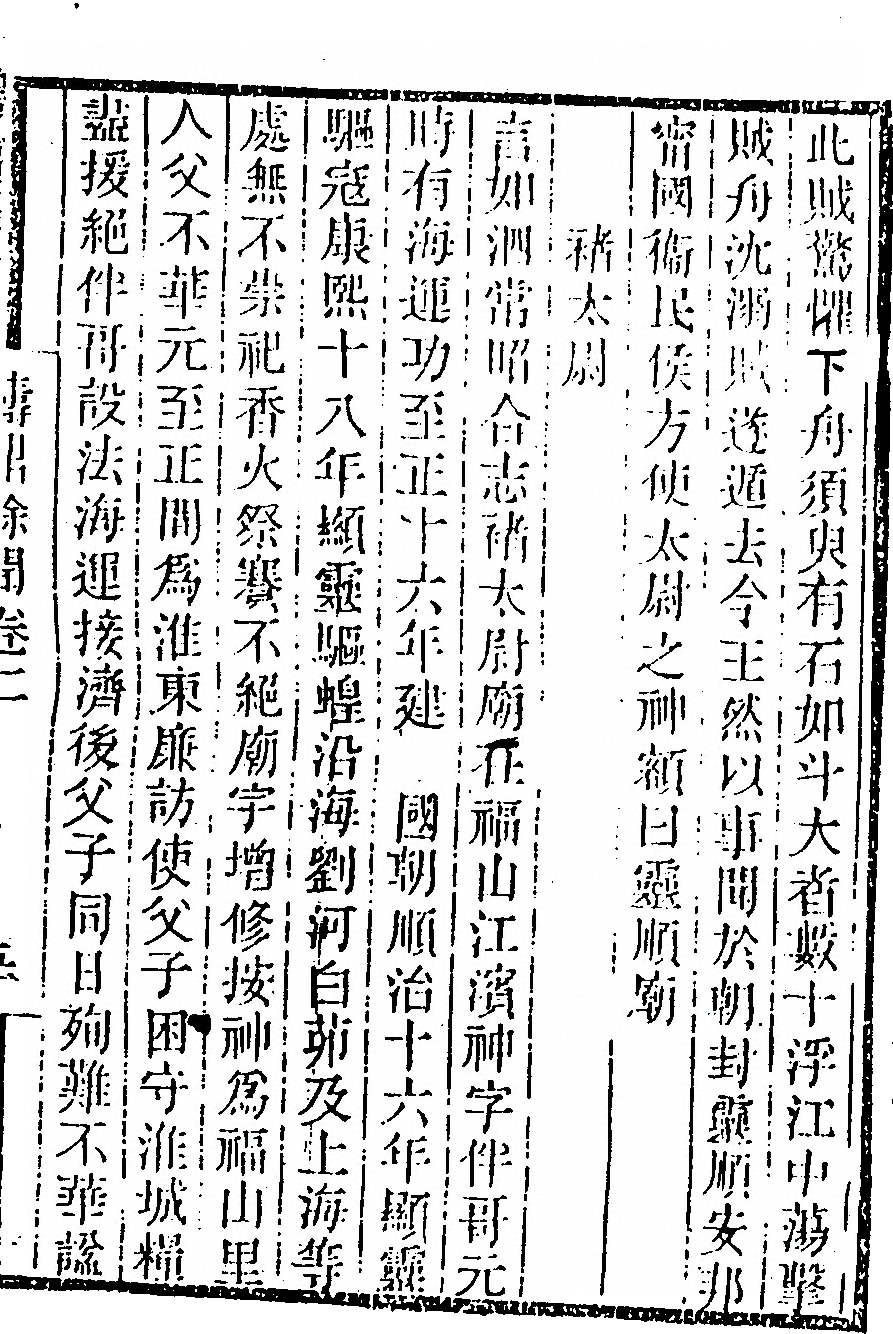 此賊驚懼下舟須臾有石如斗大者數十浮江中蕩擊
賊舟沈溺賊遂遁去今王然以事聞於朝封靈順安邦
甯國衞民侯方使太尉之神額曰靈順廟
褚太尉
言如泗常昭合志褚太尉廟在福山江濱神字伴哥元
時有海運功至正十六年建 國朝順治十六年顯靈
驅寇康熙十八年顯靈驅蝗沿海劉河白茆及上海等
處無不崇祀香火祭賽不絕廟宇增修按神爲福山里
人父不華元至正間爲淮東廉訪使父子困守淮城糧
盡援絕伴哥設法海運接濟後父子同日殉難不華諡
餘聞卷二